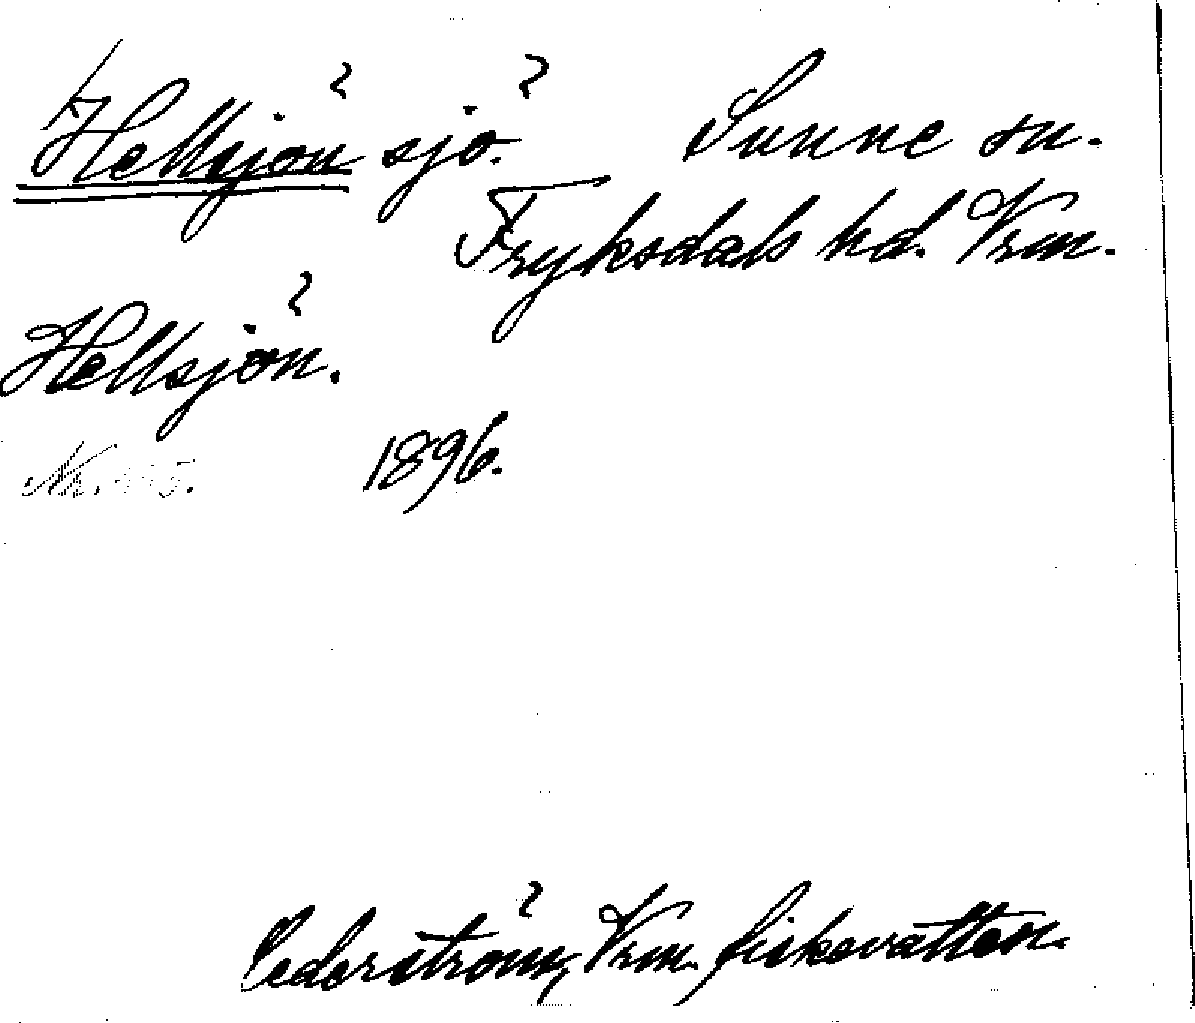 Hellsjön sjö. Sunne sn.
Fryksdals hd. Vrm.
Hellsjön.
Nr. 1896.
Cederström, Vrm. fiskevatten.